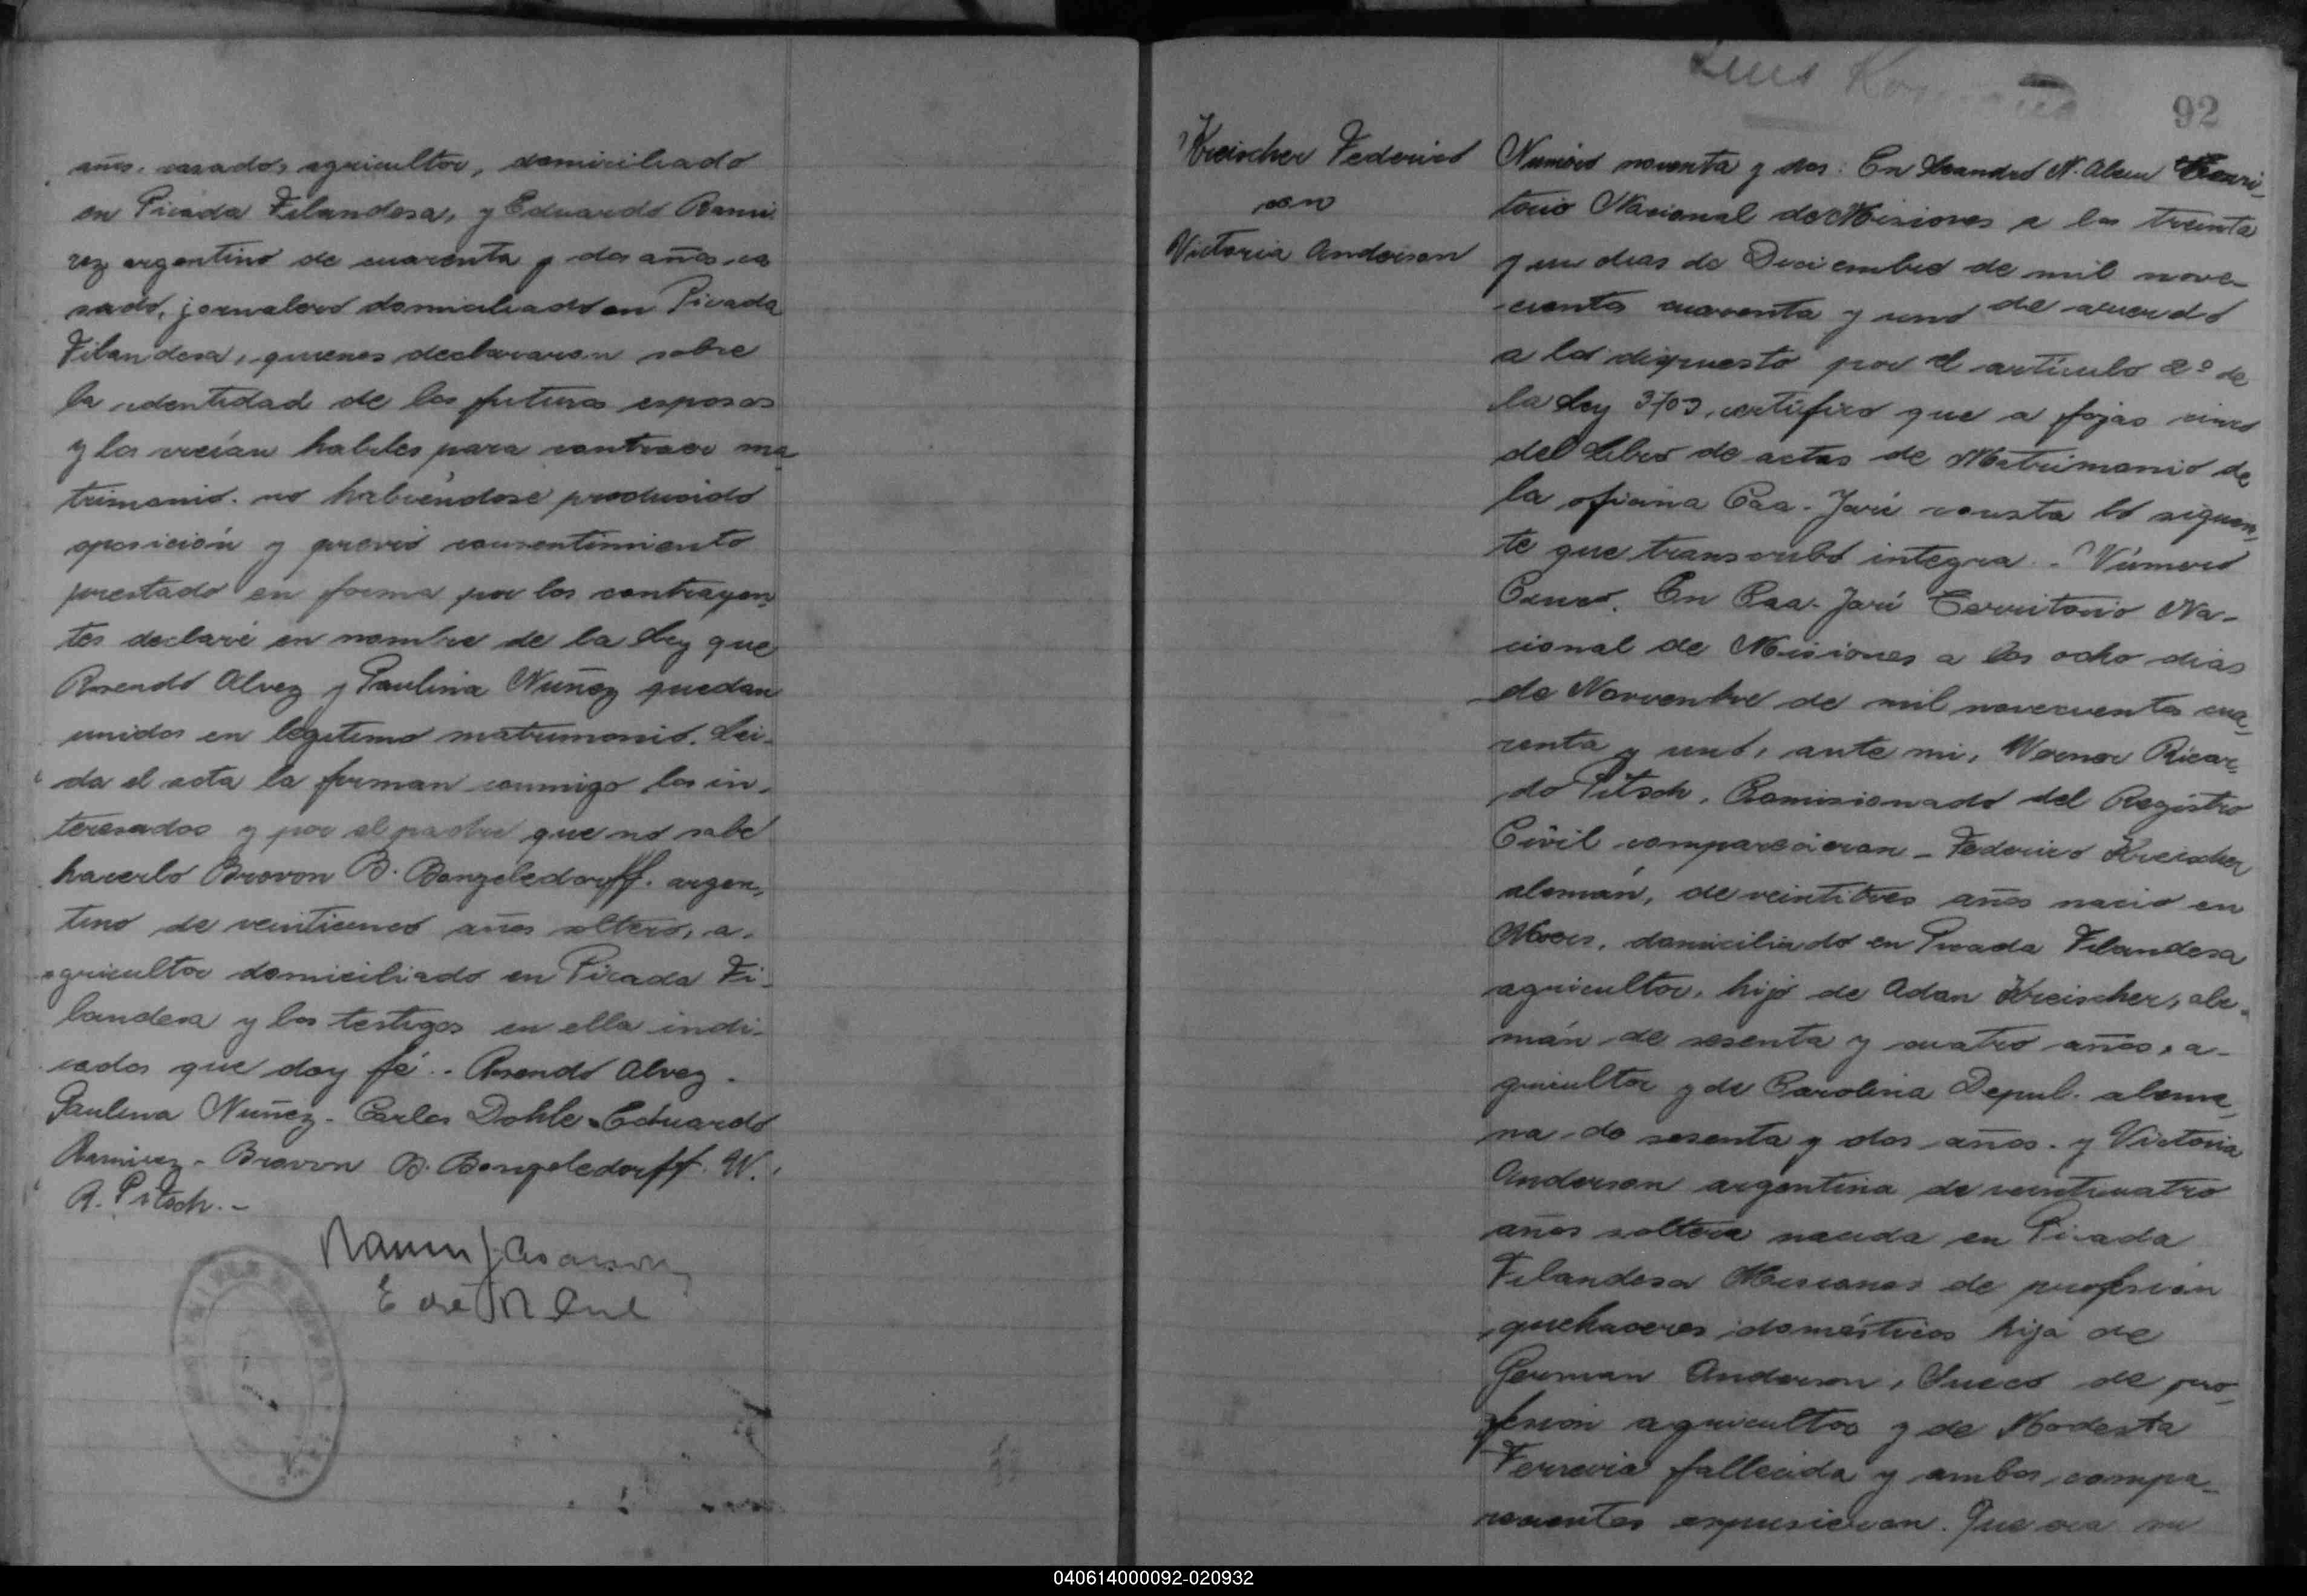 años, casado, agricultor, domiciliado
en Picada Filandesa, y Eduardo Rami
rez argentino de cuarenta y dos años, ca
sado, jornalero domiciliado en Picada
Filandesa, quienes declararon sobre
la identidad de los futuros esposos
y los creían habiles para contraer ma
trimonio. no habiéndose producido
oposición y previo consentimiento
prestado en forma por los contrayen
tes declaré en nombre de la Ley que
Rosendo Alvez y Paulina Nuñez quedan
unidos en legitimo matrimonio. Lei-
da el acta la firman conmigo los in-
teresados y por el padre que no sabe
hacerlo Brovon B. Bangeledorff. argen-
tino de veinticinco años soltero, a-
agricultor domiciliado en Picada Fi-
landesa y los testigos en ella indi-
cados que doy fé.- Rosendo Alvez -
Paulina Nuñez - Carlos Dohle - Eduardo
Ramirez - Brovon B. Bangeledorff. W.
R. Pitsch.-
92
Kreischer Federico
con
Victoria Anderson
Número noventa y dos: En Leandro N. Alem Terri-
torio Nacional de Misiones a los treinta
y un dias de Diciembre de mil nove-
cientos cuarenta y uno de acuerdo
a lo dispuesto por el artículo 2º de
la Ley 3703, certifico que a fojas cinco
del Libro de actas de Matrimonio de
la oficina Caa-Jarí consta lo siguien-
te que transcribo integra.- Número
Cinco. En Caa-Jarí Territorio Na-
cional de Misiones a los ocho dias
de Noviembre de mil novecientos cua-
renta y uno, ante mi, Werner Ricar-
do Pitsch, Comisionado del Registro
Civil comparecieron - Federico Kreischer
alemán, de veintitres años nacio en
domiciliado en Picada Filandesa
agricultor, hijo de Adan Kreischer, ale-
mán de sesenta y cuatro años, a-
gricultor y de Carolina Depul. alema-
na de sesenta y dos años. y Victoria
Anderson argentina de veinticuatro
años soltera nacida en Picada
Filandesa Misiones de profesión
quehaceres domésticos hija de
German Anderson, Sueco de pro-
fesión agricultor y de Modesta
Ferreira fallecida y ambos compa-
recientes expusieron. Que era su
040614000092-020932